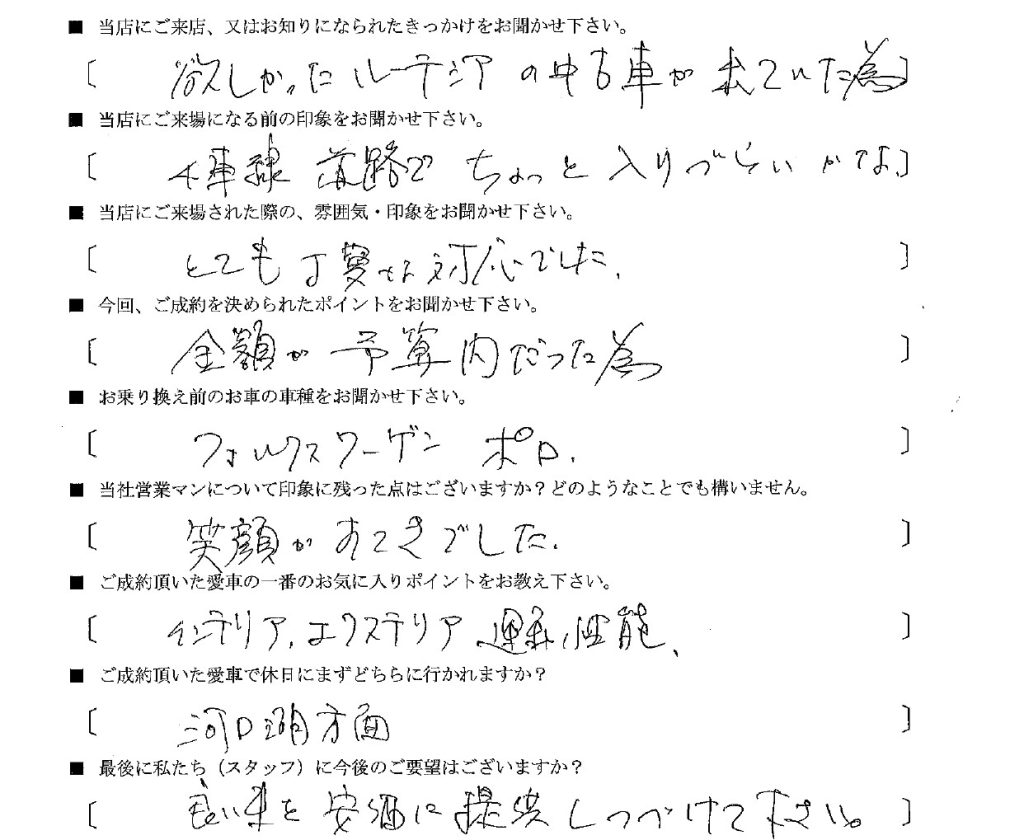 ■ 当店にご来店、又はお知りになられたきっかけをお聞かせ下さい。
〔 欲しかったルーテシアの中古車が出ていた為〕
■ 当店にご来場になる前の印象をお聞かせ下さい。
〔 4車線道路でちょっと入りづらいかな。〕
■ 当店にご来場された際の、雰囲気・印象をお聞かせ下さい。
〔 とても丁寧な対応でした。 〕
■ 今回、ご成約を決められたポイントをお聞かせ下さい。
〔 金額が予算内だった為 〕
■ お乗り換え前のお車の車種をお聞かせ下さい。
〔 フォルクスワーゲン ポロ. 〕
■ 当社営業マンについて印象に残った点はございますか?どのようなことでも構いません。
〔 笑顔がすてきでした. 〕
■ ご成約頂いた愛車の一番のお気に入りポイントをお教え下さい。
〔 インテリア、エクステリア 運転性能、 〕
■ ご成約頂いた愛車で休日にまずどちらに行かれますか?
〔 河口湖方面 〕
■ 最後に私たち(スタッフ)に今後のご要望はございますか?
〔 良い車を安価に提供しつづけて下さい。 〕